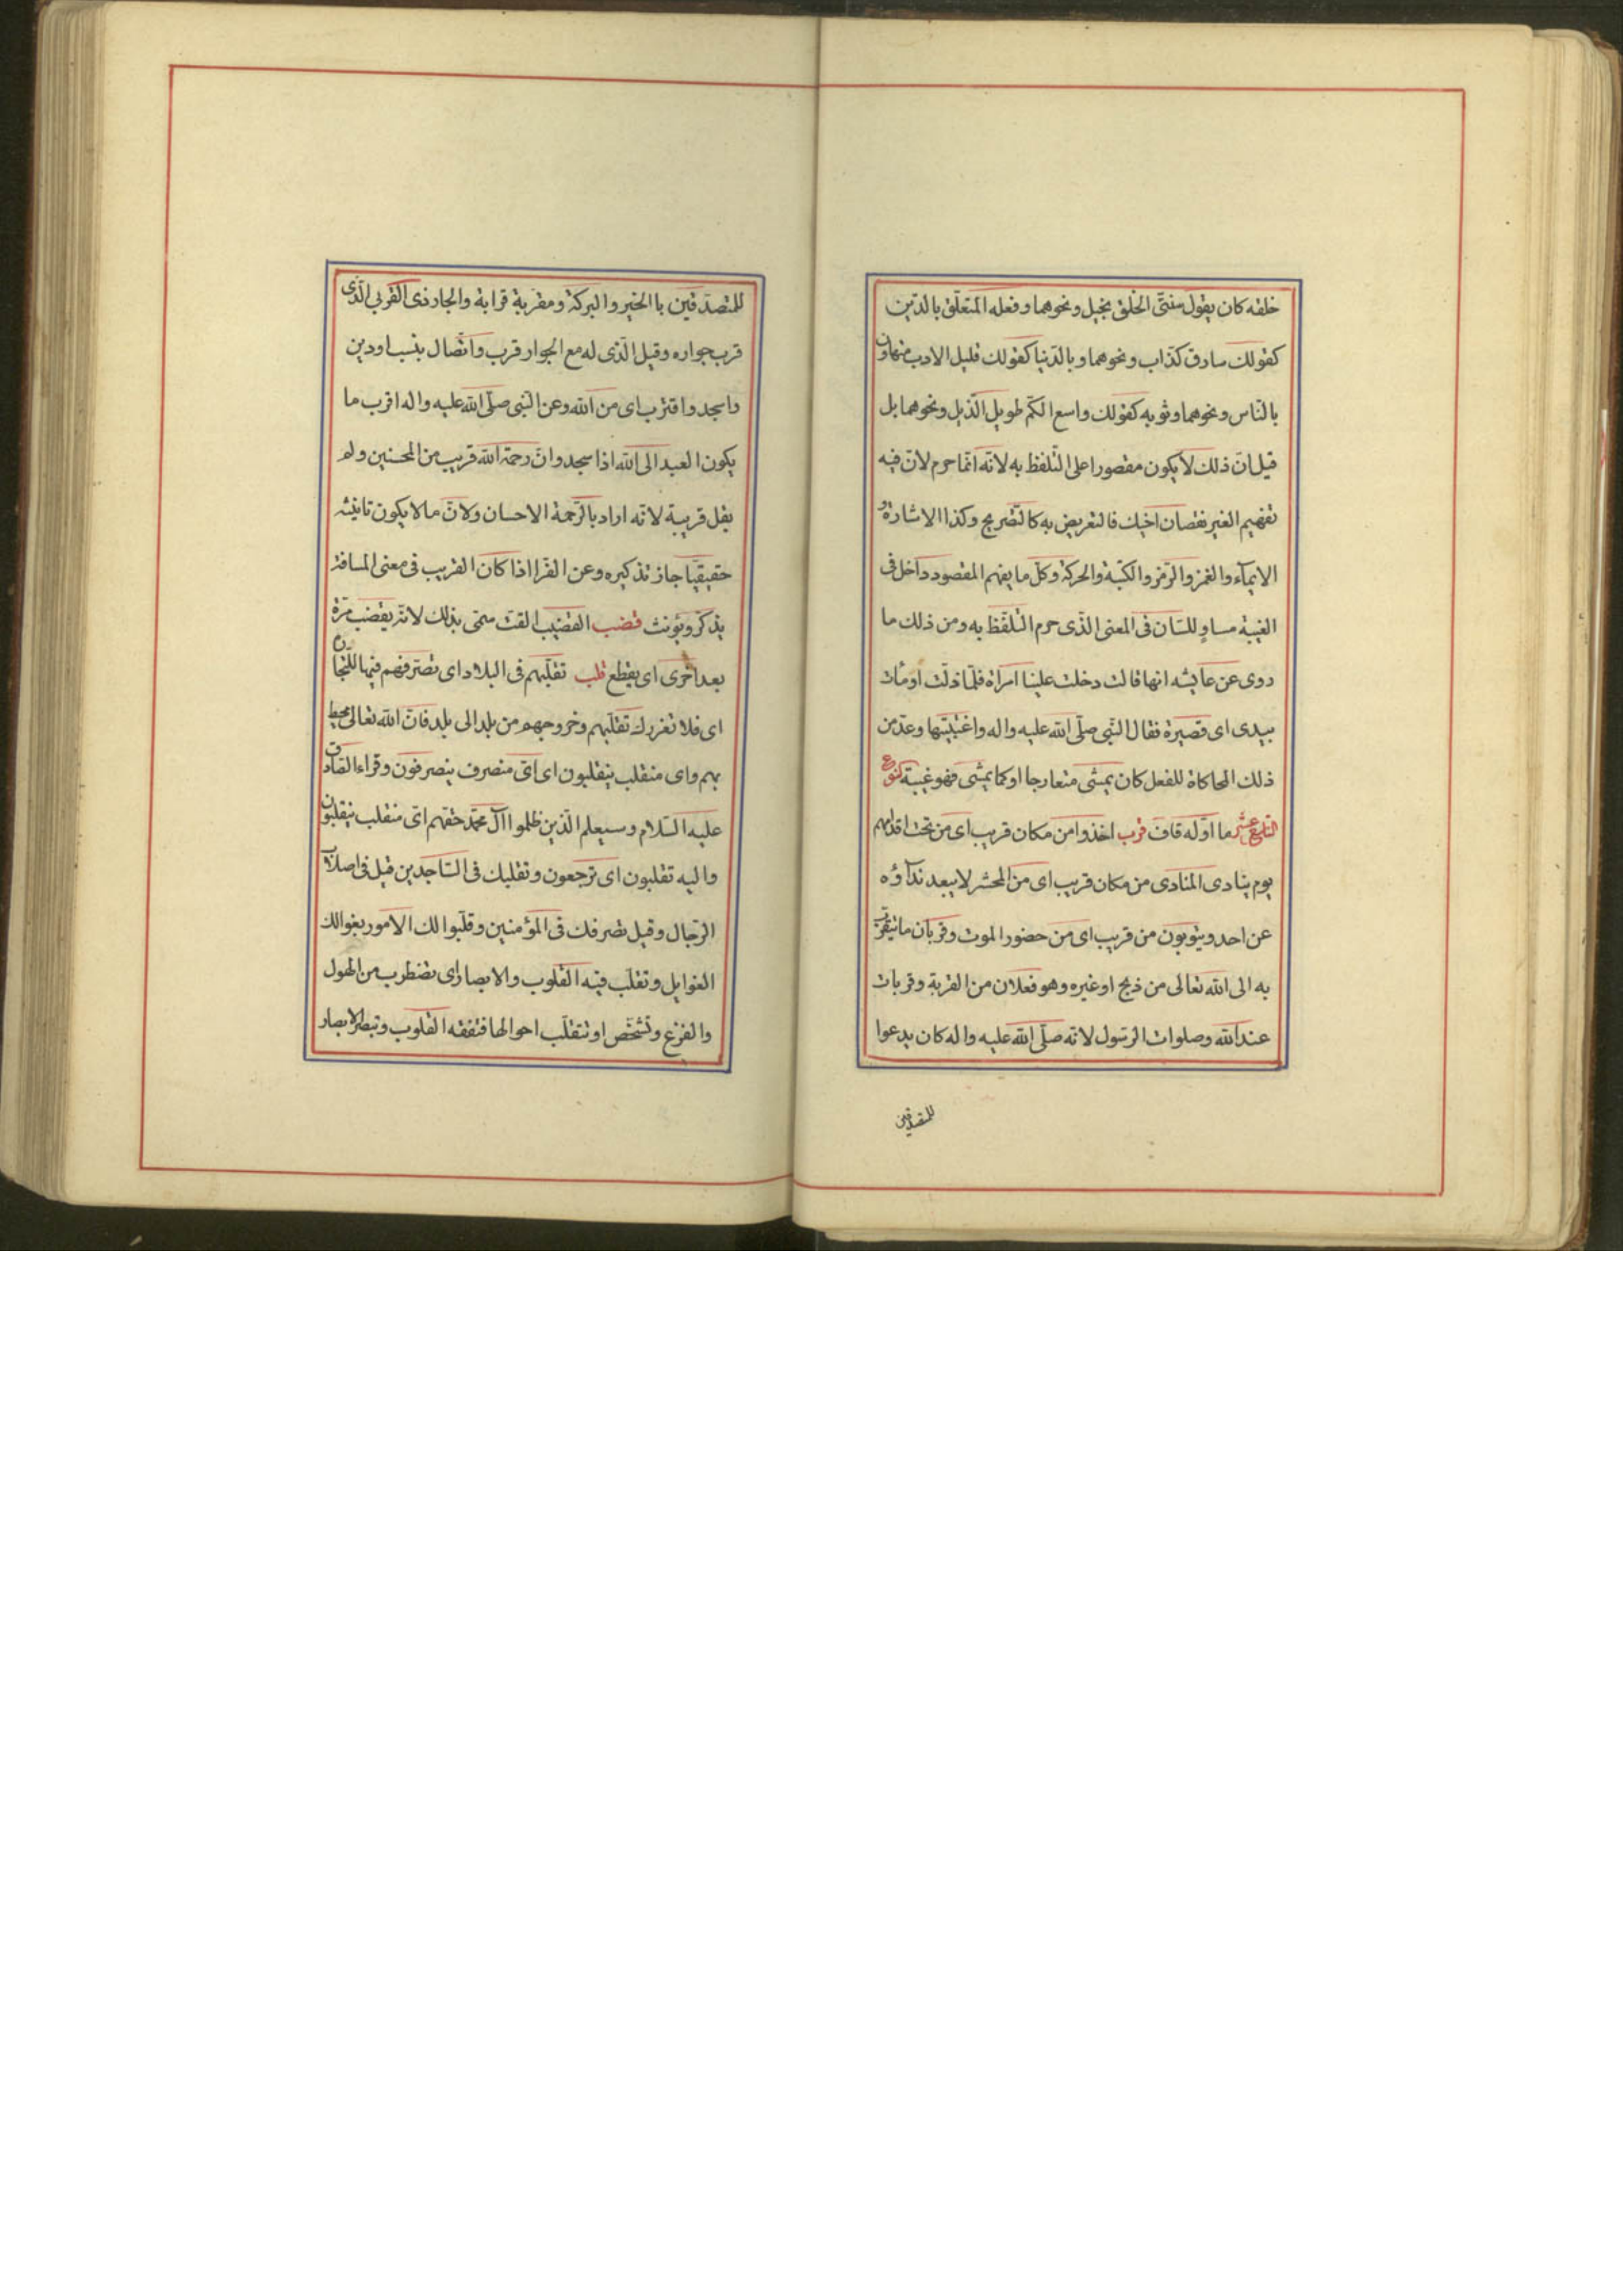 خلقه كان يقول سىّء الخلق بخيل و نحوهما و فعله المتعلّق بالدّين
كقولك سارق كذّاب و نحوهما و بالدّنيا كقولك قليل الادب متهاون
بالنّاس و نحوهما و ثوبه كقولك واسع الكمّ طويل الذّيل و نحوهما بل
قيل انّ ذلك لا يكون مقصورا على التّلفظ به لانّه انّما حرم لانّ فيه
تفهيم الغير نقصان اخيك فالتعريض به كالتّصريح و كذا الاشارة و
الايمآء و الغمز و الرّمز و الكتبة و الحركة و كلّ ما يفهم المقصود داخل فى
الغيبة مساوٍ للسّان فى المعنى الذّى حرم التّلفّظ به و من ذلك ما
روى عن عايشه انها قالت دخلت علينا امراة فلمّا ولّت اومات
بيدى اى قصيرة فقال النّبى صلّى الله عليه و اله و اغتبتيها و عدّ من
ذلك المحاكاة للفعل كان يمشى متعارجا او كما يمشى فهو غيبة النّوع
التاسع عشر ما اوّله قاف قرب اخذوا من مكان قريب اى من تحت اقدامهم
يوم ينادى المنادى من مكان قريب اى من المحشر لا يبعد ندآؤه
عن احد و يتوبون من قريب اى من حضور الموت و قربان ما تيقرّب
به الى الله تعالى من ذبح او غيره و هو فعلان من القربة و قربات
عند الله و صلوات الرّسول لانّه صلّى الله عليه و اله كان يدعوا
للمتصدّقين
للمتصدّقين باالخير و البركة و مقربة قرابة و الجار ذى القربى الّذى
قرب جواره و قيل الّذى له مع الجوار قرب و اتّصال بنسب او دين
و اسجد و اقترب اى من الله و عن النّبى صلّى الله عليه و اله اقرب ما
يكون العبد الى الله اذا سجد و انّ رحمة الله قريب من المحسنين و لم
يقل قريبة لانّه اراد بالرّحمة الاحسان و لانّ ما لا يكون تانيثه
حقيقيّا جاز تذكيره و عن الفرّا اذا كان القريب فى معنى المسافة
يذكّر و يؤنث قضب القضيب القتّ سمّى بذلك لانّه يقضب مرّة
بعد اخرى اى يقطع قلب تقلّبهم فى البلاد اى تصرّفهم فيها للتّجارة
اى فلا تغررك تقلّبهم و خروجهم من بلد الى بلد فانّ الله تعالى محيط
بهم و اى منقلب ينقلبون اى اىّ منصرف ينصرفون و قراءة الصّادق
عليه السّلام و سيعلم الّذين ظلموا آل محمّد حقّهم اىّ منقلب ينقلبون
و اليه تقلبون اى ترجعون و تقلبك فى السّاجدين قيل فى اصلاب
الرّجال و قيل تصرفك فى المؤمنين و قلّبوا لك الامور بغوا لك
الغوايل و تقلّب فيه القلوب و الابصار اى تضطرب من الهول
و الفزع و تشخص او تتقلّب احوالها فتفقه القلوب و تبصر الابصار